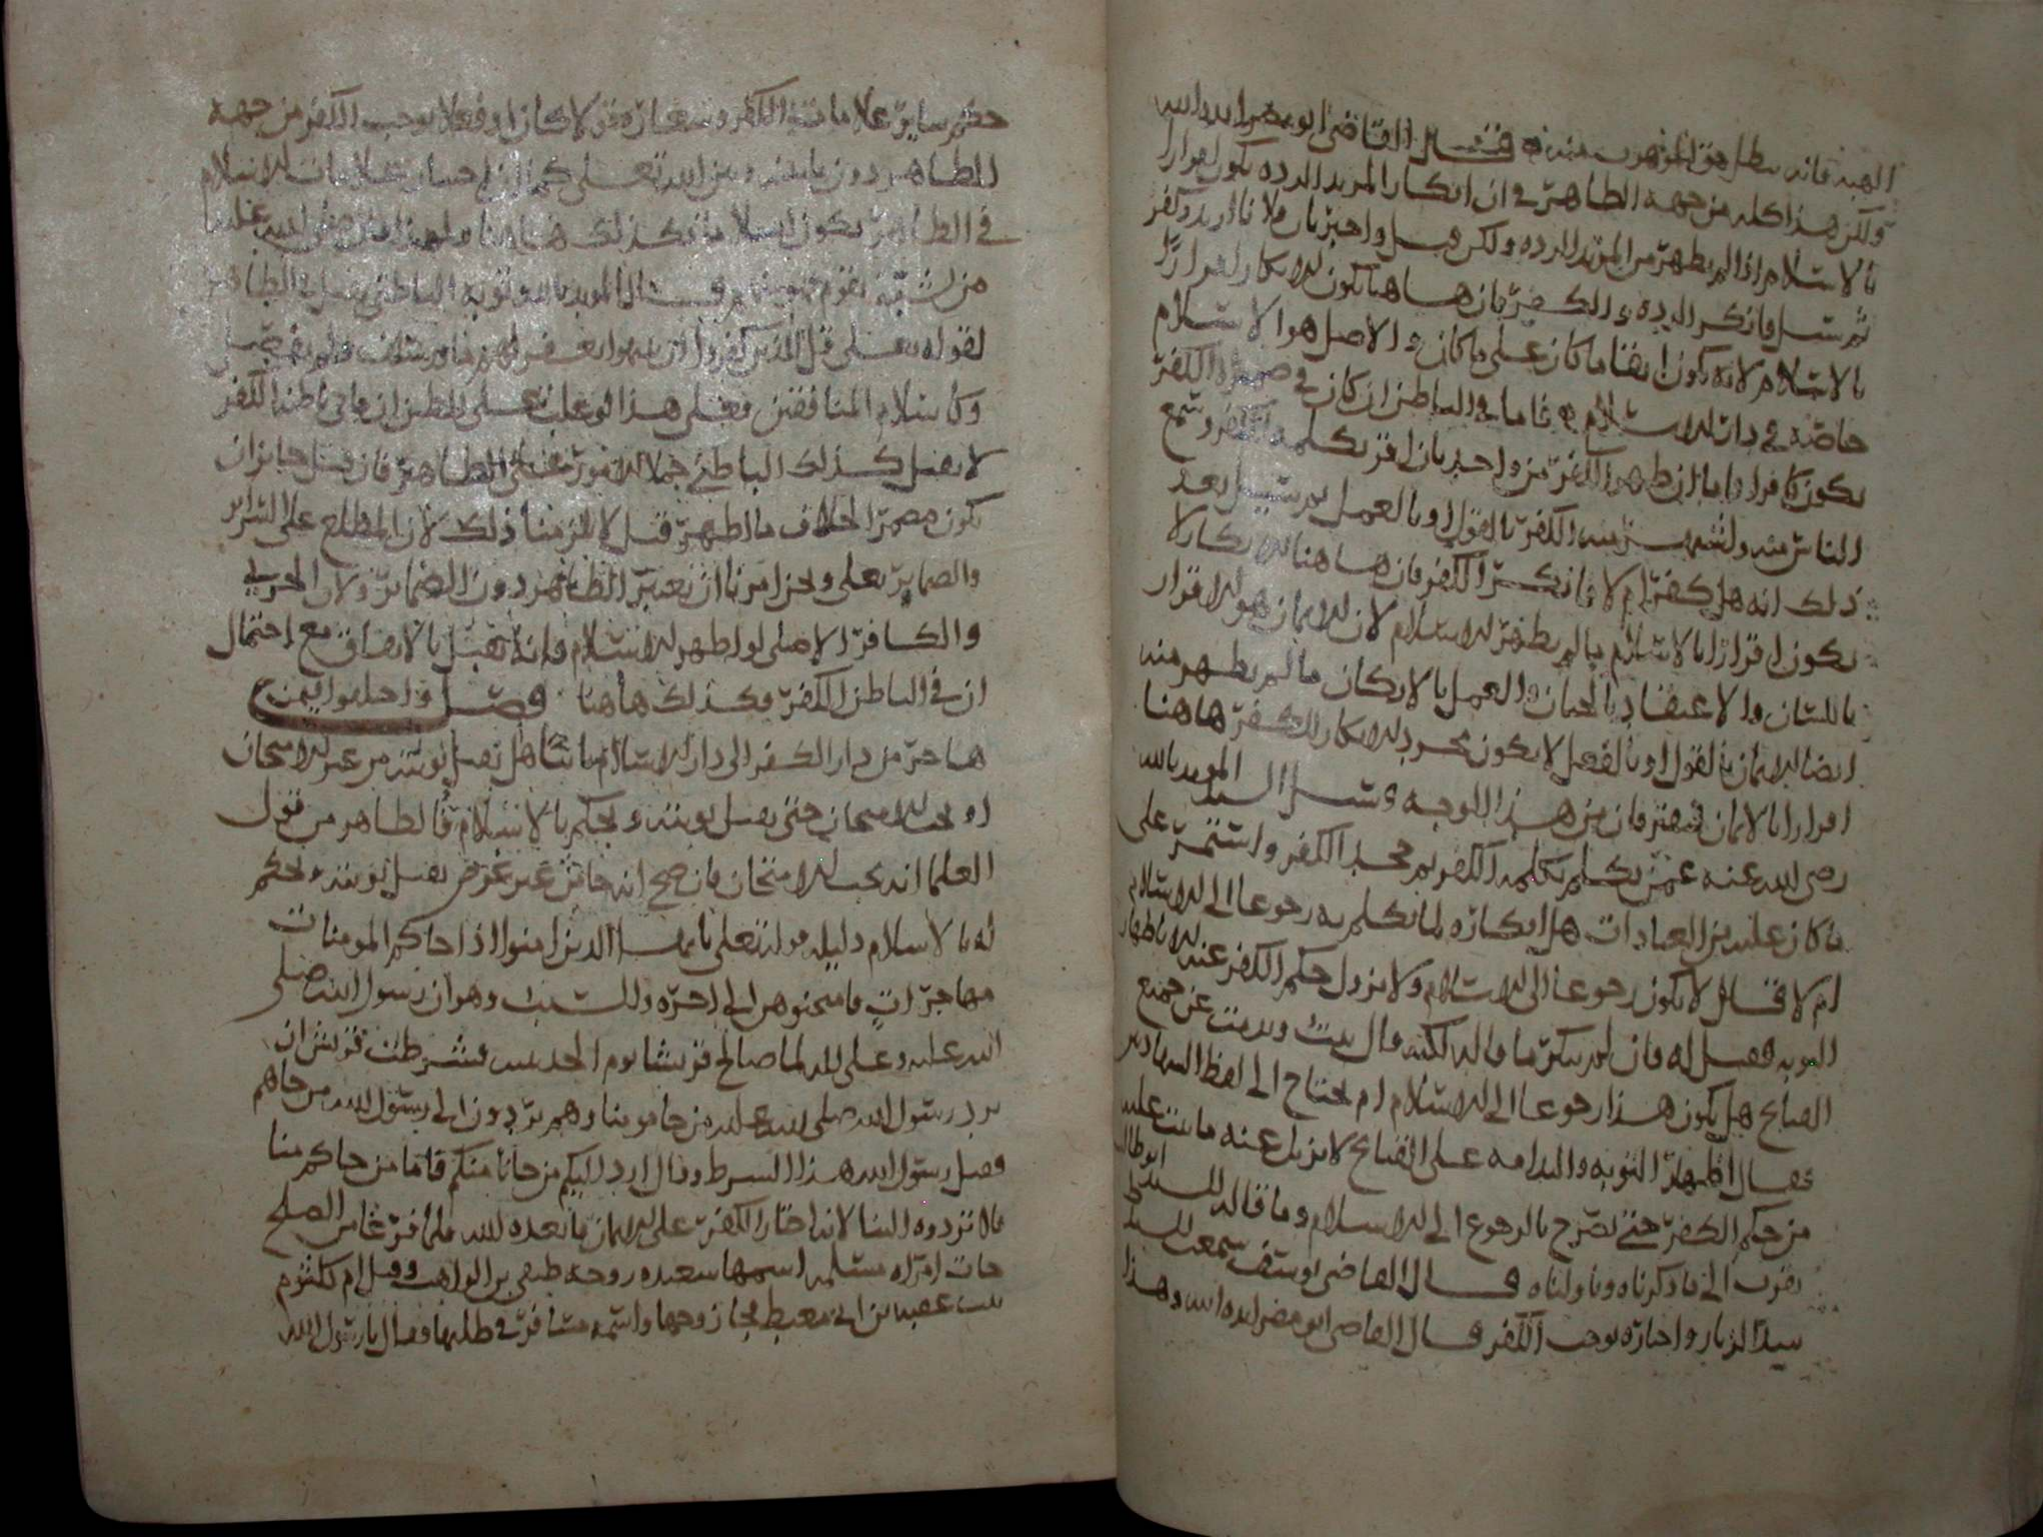 الهبه فانه يبطل حق الموهوب منه فقال القاضي ابو مضر ايده الله
ولكن هذا كله من جهه الظاهر في ان انكار المرتد الرده يكون اقرارا
بالاسلام اذا لم يظهر من المرتد الرده ولكن قيل واخبر بان فلانا ارتد وكفر
ثم سئل فانكر الرده والكفر فان هاهنا يكون الانكار اقرارا
بالاسلام لانه يكون ابقا ما كان على ما كان والاصل هو الاسلام
خاصه في دار الاسلام فاما في الباطن ان كان في ضميره الكفر
يكون كافرا واما ان ظهر الكفر من واحد بان اقر بكلمه الكفر وسمع
الناس منه واشتهر منه الكفر بالقول او بالعمل ثم سئل بعد
ذلك انه هل كفر ام لا فانكر الكفر فان هاهنا الانكار لا
يكون اقرارا بالاسلام ما لم يظهر الاسلام لان الايمان هو الاقرار
باللسان والاعتقاد بالجنان والعمل بالاركان ما لم يظهر منه
ايضا الايمان بالقول او بالفعل لا يكون مجرد الانكار للكفر هاهنا
اقرارا بالايمان فيفترقان من هذا الوجه وسئل السيد المويد بالله
رضي الله عنه عمن تكلم بكلمه الكفر ثم جحد الكفر واستمر على
ما كان عليه من العبادات هل انكاره لما تكلم به رجوعا الى الاسلام
ام لا فقال لا يكون رجوعا الى الاسلام ولا يزول حكم الكفر عنه الا باظهار
التوبه فقيل له فان لم ينكر ما قاله لكنه قال تبت وندمت عن جميع
القبايح هل يكون هذا رجوعا الى الاسلام ام يحتاج الى لفظ الشهادتين
فقال اظهار التوبه والندامه على القبايح لا يزيل عنه ما ثبت عليه
من حكم الكفر حتى يصرح بالرجوع الى الاسلام وما قاله السيد ابو طالب
يقرب الى ما ذكرناه وتاولناه قال القاضي يوسف سمعت السيد
شد الزنار واختاره يوجب الكفر قال القاضي ابو مضر ايده الله وهذا
حكم ساير علامات الكفر وشعاره قولا كان او فعلا يوجب الكفر من جهه
الظاهر دون ما بينه وبين الله تعالى كما ان اختيار علامات الاسلام
في الظاهر يكون اسلاما فكذلك هاهنا ولهذا قال صلى الله عليه
من تشبه بقوم فهو منهم قال المويد بالله وتوبه الباطني تقبل في الظاهر
لقوله تعالى قل للذين كفروا ان ينتهوا يغفر لهم ما قد سلف ولم يفصل
وكاسلام المنافقين فعلى هذا لو غلب على الظن ان في باطنه الكفر
لا يقبل كذلك الباطني حملا للامور على الظاهر فان قيل جايز ان
يكون مضمرا خلاف ما اظهر قيل لا يلزمنا ذلك لان المطلع على السراير
والضماير تعالى ونحن امرنا ان نعتبر الظاهر دون الضماير ولان الحربي
والكافر الاصلي لو اظهر الاسلام فانه يقبل بالاتفاق مع احتمال
ان في الباطن الكفر فكذلك هاهنا فصل واختلفوا فيمن
هاجر من دار الكفر الى دار الاسلام تائبا هل تقبل توبته من غير الامتحان
او يجب الامتحان حتى يقبل توبته ويحكم بالاسلام فالظاهر من قول
العلما انه يجب الامتحان فان صح انه جا من غير غرض يقبل توبته ويحكم
له بالاسلام دليله قوله تعالى يا ايها الذين امنوا اذا جاكم المومنات
مهاجرات فامتحنوهن الى اخره والسبب وهو ان رسول الله صلى
الله عليه وعلى اله لما صالح قريشا يوم الحديبيه فشرطت قريش ان
يرد رسول الله صلى الله عليه من جا مومنا وهم يردون الى رسول الله من جاهم
فقبل رسول الله هذا الشرط وقال ارد اليكم من جانا منكم فاما من جاكم منا
فلا تردوه الينا لانه اختار الكفر على الايمان فابعده الله فلما فرغا من الصلح
جات امراه مسلمه اسمها سعيده زوجه صيفي بن الراهب وقيل ام كلثوم
بنت عقبه بن ابي معيط فجا زوجها واسمه مسافر في طلبها فقال يا رسول الله